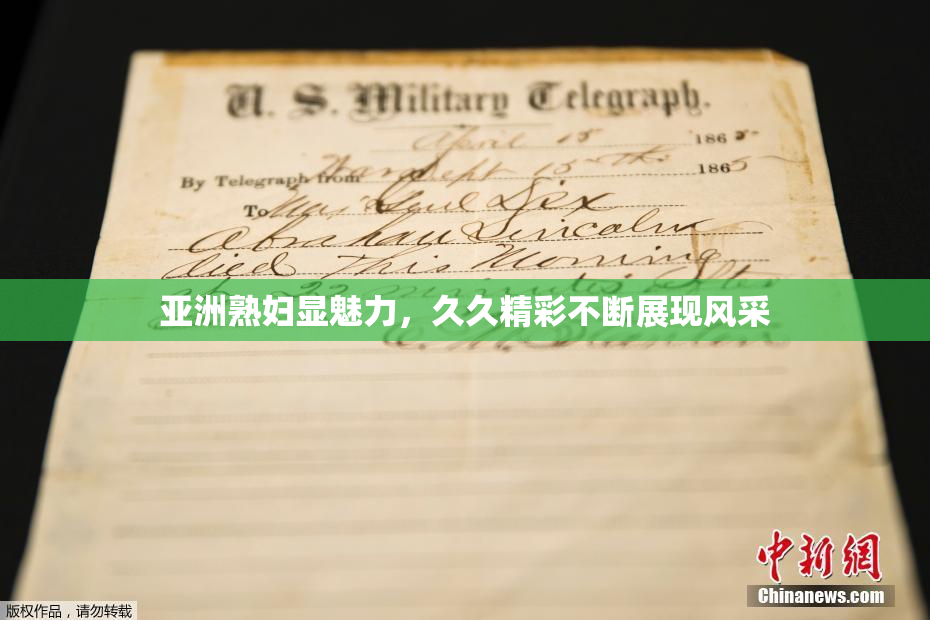 U. S. Military Telegraph.
April 15 1865
By Telegraph from War Dept 15th 1865
To Maj Genl Dix
Abraham Lincoln
died This Morning
at 22 minutes after
亚洲熟妇显魅力，久久精彩不断展现风采
E. M. Stanton
中新网
Chinanews.com
版权作品，请勿转载